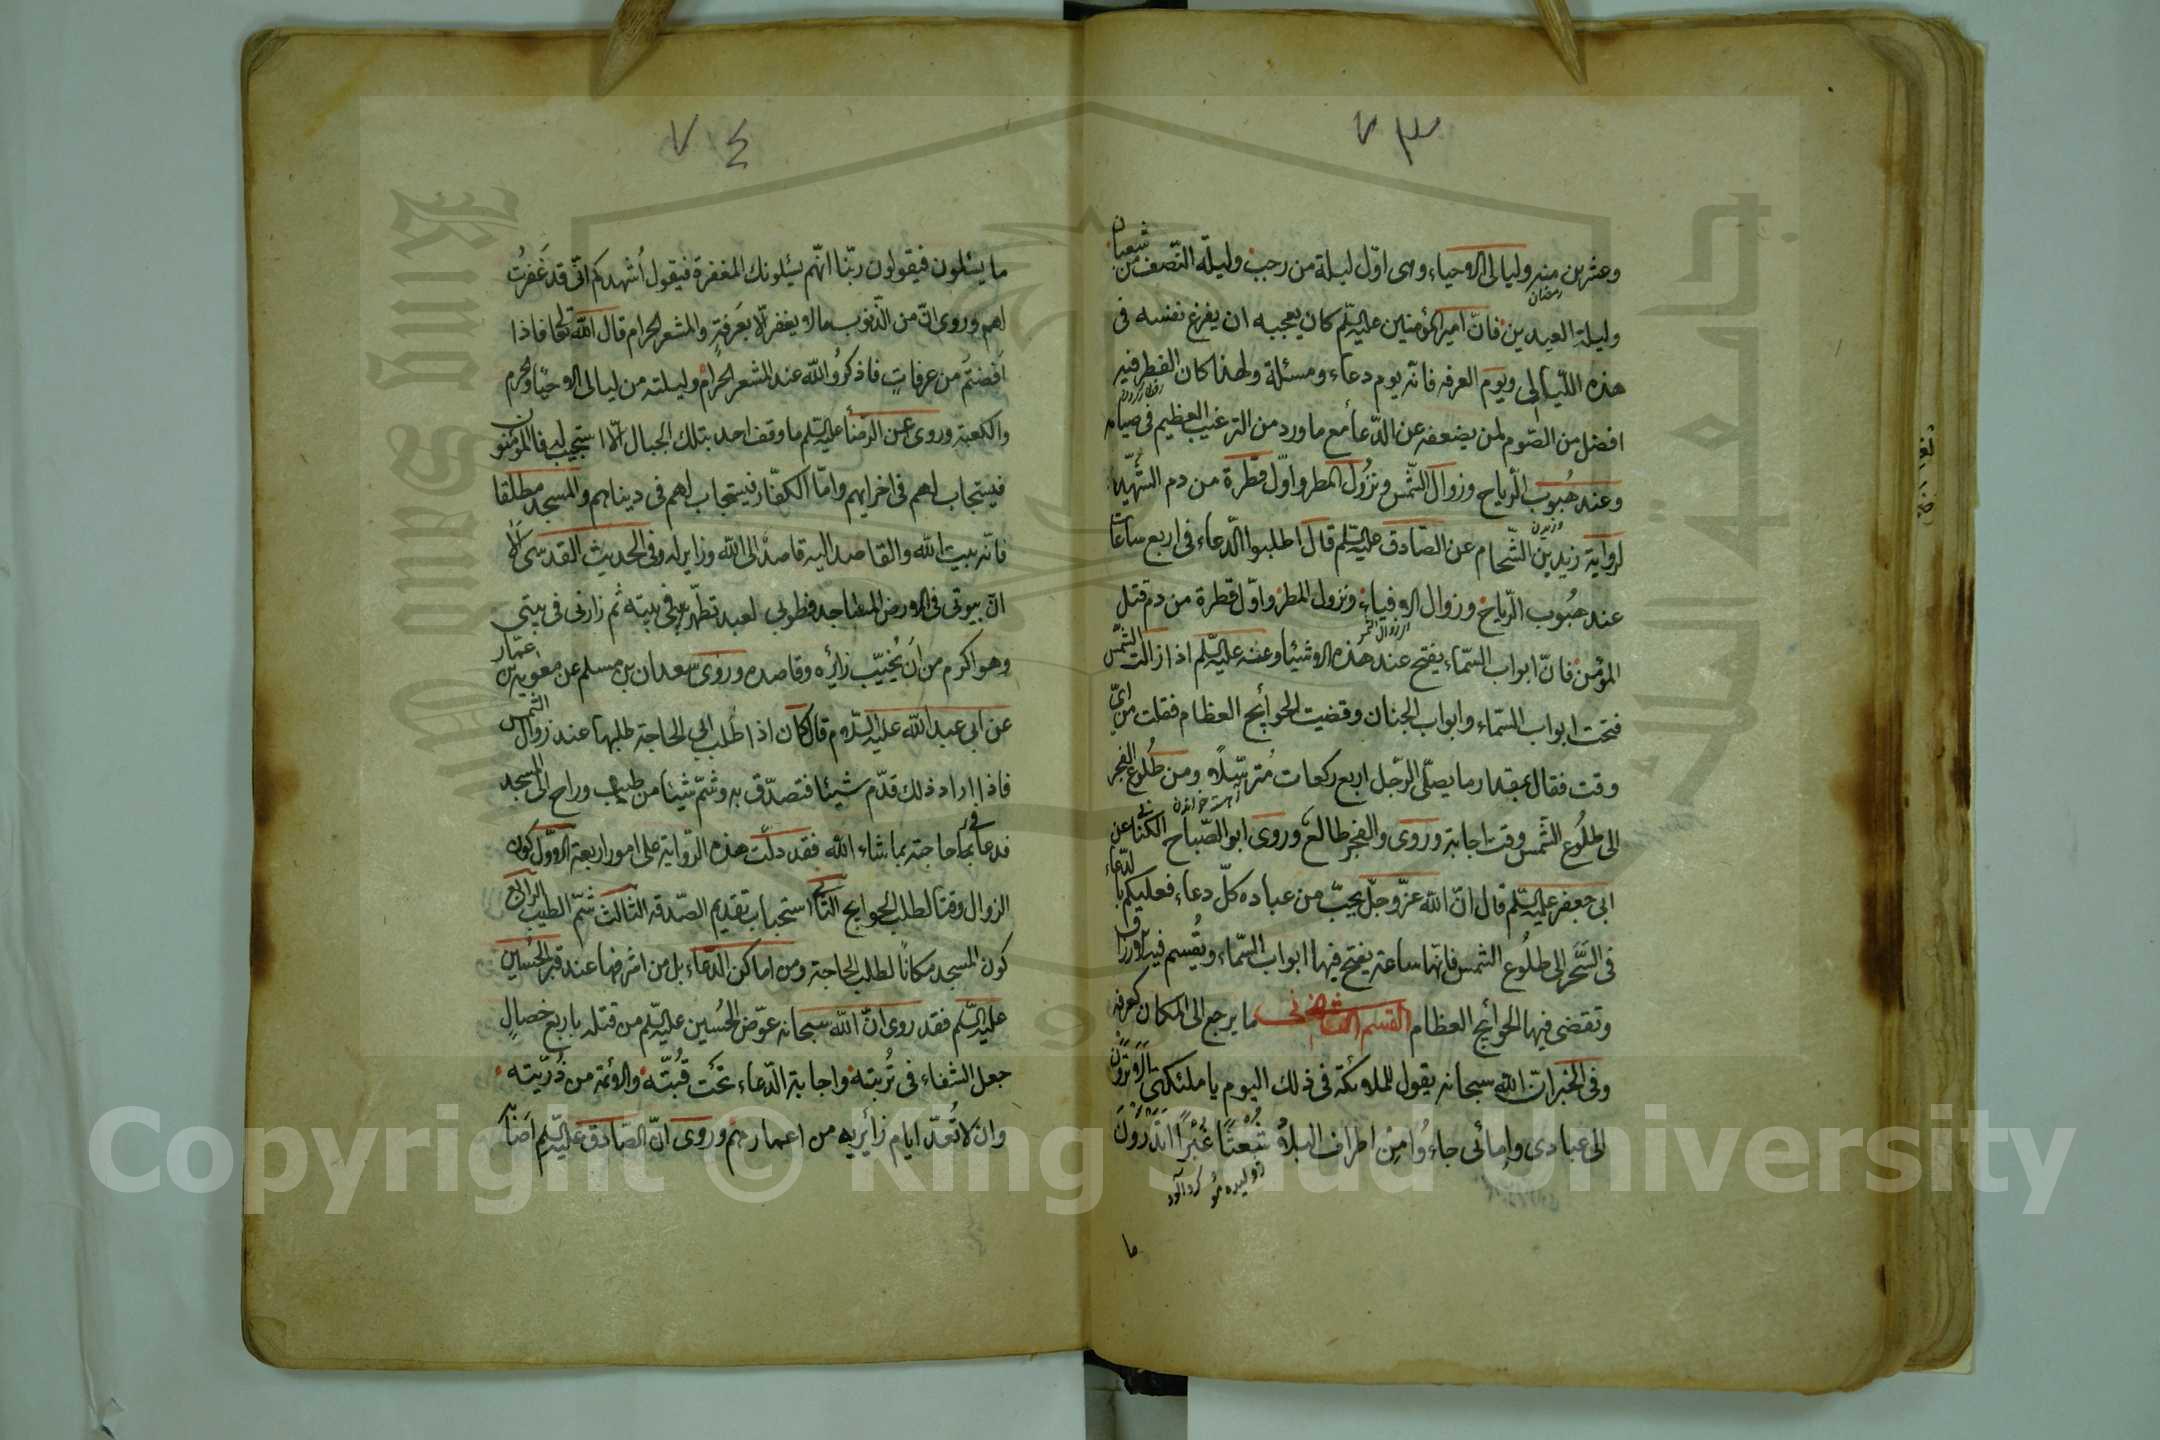 ٧٣
وعشرين منه وليالى الاحياء وهى اوّل ليلة من رجب وليلة النّصف من شعبان
رمضان
وليلة العيدين فانّ امير المؤمنين عليه السّلم كان يعجبه ان يفرغ نفسه فى
هذه اللّيالى ويوم العرفه فانّه يوم دعاء ومسئلة ولهذا كان الفطر فيه
افضل من الصّوم لمن يضعفه عن الدّعاء مع ما ورد من الترغيب العظيم فى صيامه
وعند هُبوب الرّياح وزوال الشّمس ونزُول المطر واوّل قطرة من دم الشّهيد
لرواية زيد بن الشّحام عن الصّادق عليه السّلم قال اطلبوا الدّعاء فى اربع ساعات
عند هبُوب الرّياح وزوال الافياء ونزول المطر واوّل قطرة من دم قتل
المؤمن فانّ ابواب السّماء يفتح عند هذه الاشياء وعنه عليه السّلم اذا زالت الشّمس
فتحت ابواب السّماء وابواب الجنان وقضيت الحوائج العظام فقلت من اىّ
وقت فقال بمقدار ما يصلّى الرّجل اربع ركعات مُترسّلاً ومن طلُوع الفجر
الى طلُوع الشّمس وقت اجابة وروى والفجر طالع وروى ابو الصّباح الكنانى عن
ابى جعفر عليه السّلم قال انّ الله عزّ وجلّ يحبّ من عباده كلّ دعاء فعليكم بالدّعاء
فى السّحَر الى طلُوع الشمس فانّها ساعة يفتح فيها ابواب السّماء ويُقسم فيه الارزاق
وتقضى فيها الحوائج العظام القسم الثانى ما يرجع الى المكان كعرفه
وفى الخبر انّ الله سبحانه يقول للملائكة فى ذلك اليوم يا ملئكتى الا ترون
الى عبادى وامائى جاءُوا من اطراف البلاد شُعْثًا غُبْرًا اتَدْرُوْنَ
ما
٧٤
ما يسئلون فيقولون ربّنا انّهم يسئلونك المغفرة فيقول اُشهدكم انّى قد غَفرتُ
لهم وروى انّ من الذّنوب ما لا يغفر الّا بعَرفةٍ والمشعر الحرام قال الله تعالى فاذا
اَفضتُم من عرفاتٍ فاذكرُوا الله عند المشعر الحرَام وليلته من ليالى الاحياء والحرم
والكعبة وروى عن الرضا عليه السّلم ما وقف احد بتلك الجبال الّا استجيب له فالمؤمنون
فيستجاب لهم فى اخرايهم وامّا الكفّار فيستجاب لهم فى ديناهم والمسجد مطلقا
فانّه بيت الله والقاصد اليه قاصدٌ الى الله وزايره وفى الحديث القدسّى الا
انّ بيوتى فى الارض المساجد فطوبى لعبد تطهّر فى بيته ثم زارنى فى بيتى
وهو اكرم من اَن يُخيّب زائره وقاصده وروى سعدان بن مسلم عن معوية بن عمّار
عن ابى عبد الله عليه السّلام قال كان اذا طلب ابى الحاجة طلبها عند زوال الشمس
فاذا اراد ذلك قدّم شيئا فتصدّق به وشمّ شيئا من طيب وراح الى المسجد
فدعا فى حاجته بما شاء الله فقد دلّت هذه الرّواية على امور اربعة الاوّل كون
الزوال وقتا لطلب الحوايج الثّانى استحباب تقديم الصّدقه الثّالث شمّ الطيب الرّابع
كون المسجد مكانًا لطلب الحاجة ومن اماكن الدّعاء بل من اشرفها عند قبر الحُسين
عليه السّلم فقد روى انّ الله سبحانه عوّض الحُسين عليه السّلم من قتله باربع خصالٍ
جعل الشفاء فى تُربته واجابة الدّعاء تحَت قُبّته والائمّة من ذُرّيته
وان لا تُعدّ ايام زائريه من اعمارهم وروى انّ الصّادق عليه السّلم اصابه
Copyright © King Saud University